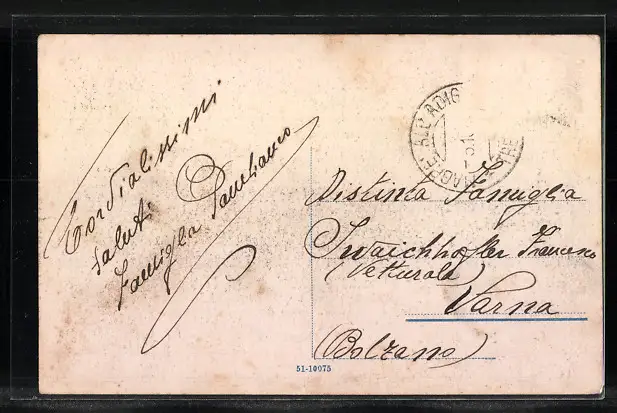 Cordialissimi
saluti
Famiglia
Distinta Famiglia
Francesco
(Vetturale)
Varna
(Bolzano)
51-10075